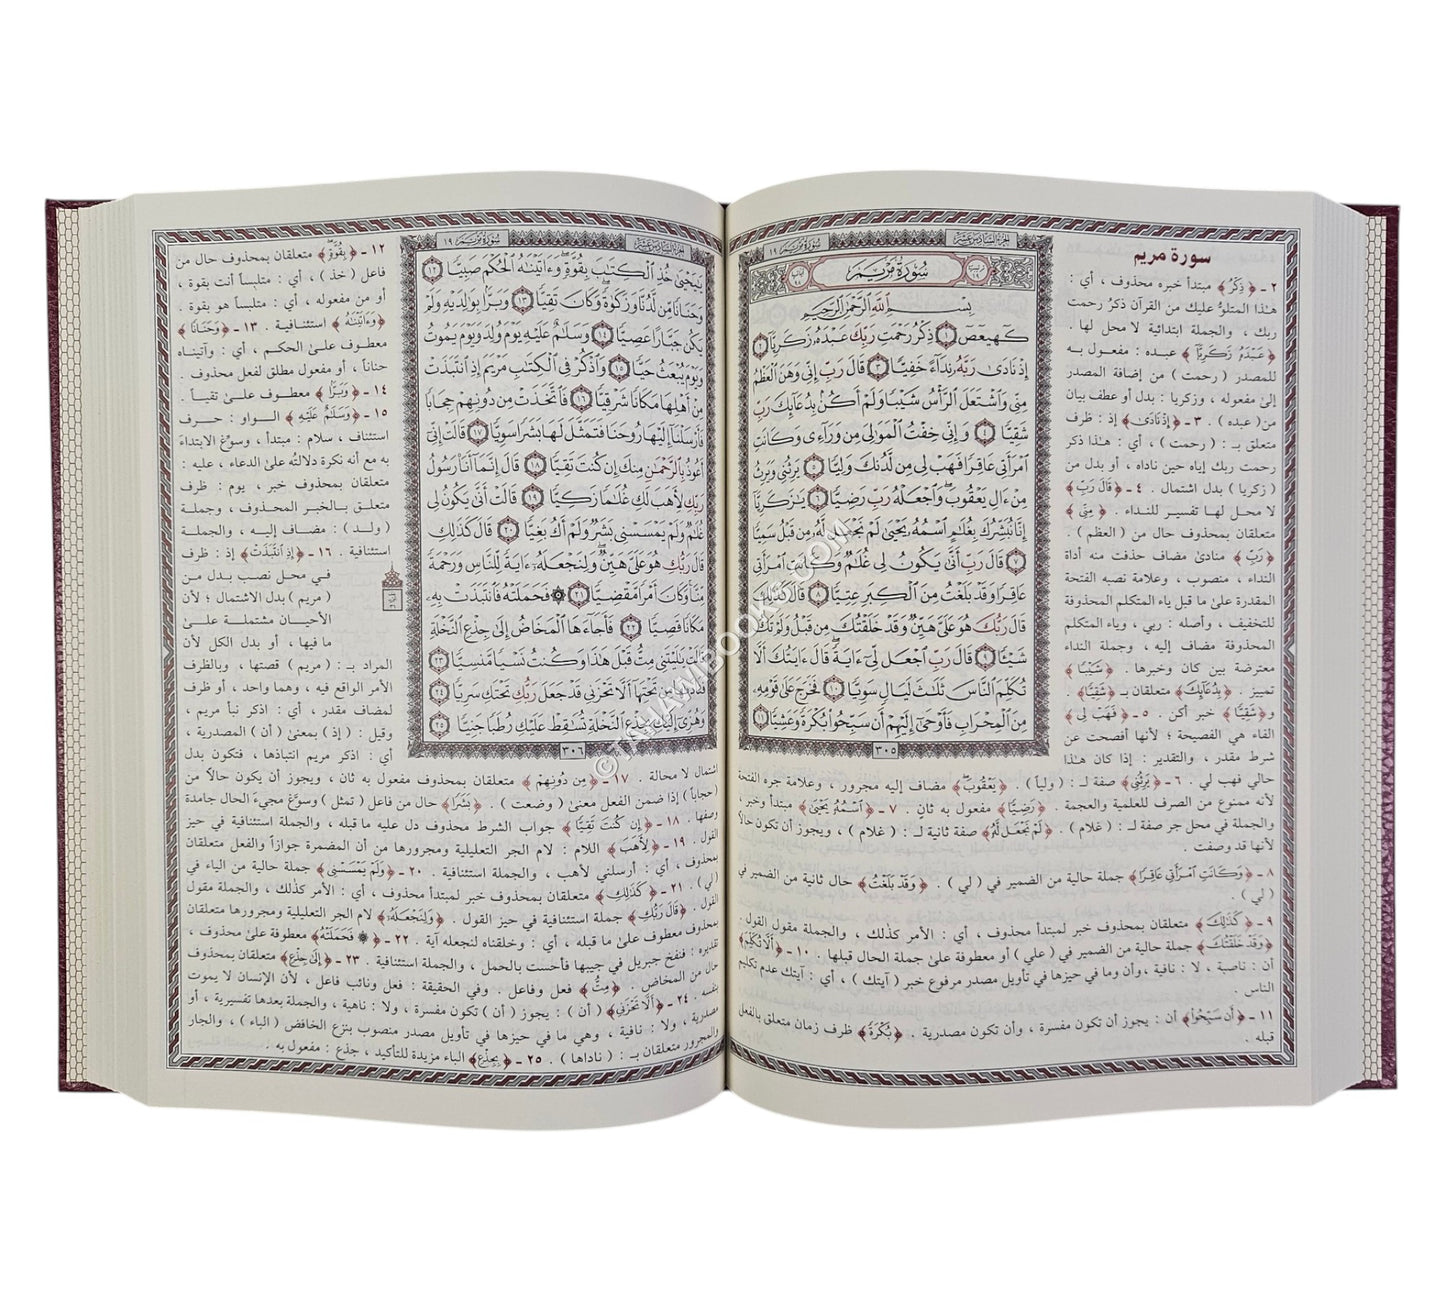 سورة مريم
٢ ـ ﴿ ذِكْرُ ﴾ مبتدأ خبره محذوف ، أي :
هذا المتلوُّ عليك من القرآن ذكرُ رحمت
ربك ، والجملة ابتدائية لا محل لها .
﴿ عَبْدَهُ زَكَرِيَّا ﴾ عبده : مفعول به
للمصدر ( رحمت ) من إضافة المصدر
إلى مفعوله ، وزكريا : بدل أو عطف بيان
من( عبده ) . ٣ ـ ﴿إِذْ نَادَىٰ﴾ إذ : ظرف
متعلق بـ : ( رحمت ) ، أي : هذا ذكر
رحمت ربك إياه حين ناداه ، أو بدل من
( زكريا ) بدل اشتمال . ٤ ـ ﴿قَالَ رَبِّ﴾
لا محل لها تفسير للنداء . ﴿ مِنِّي ﴾
متعلقان بمحذوف حال من ( العظم ) .
﴿رَبِّ﴾ منادىً مضاف حذفت منه أداة
النداء ، منصوب ، وعلامة نصبه الفتحة
المقدرة على ما قبل ياء المتكلم المحذوفة
للتخفيف ، وأصله : ربي ، وياء المتكلم
المحذوفة مضاف إليه ، وجملة النداء
معترضة بين كان وخبرها . ﴿شَيْبًا﴾
تمييز . ﴿بِدُعَائِكَ﴾ متعلقان بـ ﴿شَقِيًّا﴾ .
و﴿شَقِيًّا﴾ خبر أكن . ٥ ـ ﴿فَهَبْ لِي﴾
الفاء هي الفصيحة ؛ لأنها أفصحت عن
شرط مقدر ، والتقدير : إذا كان هذا
حالي فهب لي . ٦ ـ ﴿يَرِثُنِي﴾ صفة لـ : ( ولياً ) . ﴿يَعْقُوبَ﴾ مضاف إليه مجرور ، وعلامة جره الفتحة
لأنه ممنوع من الصرف للعلمية والعجمة . ﴿رَضِيًّا﴾ مفعول به ثانٍ . ٧ ـ ﴿اسْمُهُ يَحْيَىٰ﴾ مبتدأ وخبر ،
والجملة في محل جر صفة لـ : ( غلام ) . ﴿لَمْ نَجْعَل لَّهُ﴾ صفة ثانية لـ : ( غلام ) ، ويجوز أن تكون حالاً
لأنها قد وصفت .
٨ ـ ﴿وَكَانَتِ امْرَأَتِي عَاقِرًا﴾ جملة حالية من الضمير في ( لي ) . ﴿وَقَدْ بَلَغْتُ﴾ حال ثانية من الضمير في
( لي ) .
٩ ـ ﴿كَذَٰلِكَ﴾ متعلقان بمحذوف خبر لمبتدأ محذوف ، أي : الأمر كذلك ، والجملة مقول القول .
﴿وَقَدْ خَلَقْتُكَ﴾ جملة حالية من الضمير في ( علي ) أو معطوفة على جملة الحال قبلها . ١٠ ـ ﴿أَلَّا تُكَلِّمَ﴾
أن : ناصبة ، لا : نافية ، وأن وما في حيزها في تأويل مصدر مرفوع خبر ( آيتك ) ، أي : آيتك عدم تكليم
الناس .
١١ ـ ﴿أَن سَبِّحُوا﴾ أن : يجوز أن تكون مفسرة ، وأن تكون مصدرية . ﴿بُكْرَةً﴾ ظرف زمان متعلق بالفعل
قبله .
الجزء السادس عشر
سورة مريم ١٩
سُورَةُ مَرْيَمَ
بِسْمِ اللَّهِ الرَّحْمَٰنِ الرَّحِيمِ
كٓهيعٓصٓ ١ ذِكْرُ رَحْمَتِ رَبِّكَ عَبْدَهُ زَكَرِيَّا ٢
إِذْ نَادَىٰ رَبَّهُ نِدَاءً خَفِيًّا ٣ قَالَ رَبِّ إِنِّي وَهَنَ الْعَظْمُ
مِنِّي وَاشْتَعَلَ الرَّأْسُ شَيْبًا وَلَمْ أَكُن بِدُعَائِكَ رَبِّ
شَقِيًّا ٤ وَإِنِّي خِفْتُ الْمَوَالِيَ مِن وَرَاءِي وَكَانَتِ
امْرَأَتِي عَاقِرًا فَهَبْ لِي مِن لَّدُنكَ وَلِيًّا ٥ يَرِثُنِي وَيَرِثُ
مِنْ آلِ يَعْقُوبَ وَاجْعَلْهُ رَبِّ رَضِيًّا ٦ يَا زَكَرِيَّا
إِنَّا نُبَشِّرُكَ بِغُلَامٍ اسْمُهُ يَحْيَىٰ لَمْ نَجْعَل لَّهُ مِن قَبْلُ سَمِيًّا
٧ قَالَ رَبِّ أَنَّىٰ يَكُونُ لِي غُلَامٌ وَكَانَتِ امْرَأَتِي
عَاقِرًا وَقَدْ بَلَغْتُ مِنَ الْكِبَرِ عِتِيًّا ٨ قَالَ كَذَٰلِكَ
قَالَ رَبُّكَ هُوَ عَلَيَّ هَيِّنٌ وَقَدْ خَلَقْتُكَ مِن قَبْلُ وَلَمْ تَكُ
شَيْئًا ٩ قَالَ رَبِّ اجْعَل لِّي آيَةً قَالَ آيَتُكَ أَلَّا
تُكَلِّمَ النَّاسَ ثَلَاثَ لَيَالٍ سَوِيًّا ١٠ فَخَرَجَ عَلَىٰ قَوْمِهِ
مِنَ الْمِحْرَابِ فَأَوْحَىٰ إِلَيْهِمْ أَن سَبِّحُوا بُكْرَةً وَعَشِيًّا ١١
٣٠٥
الجزء السادس عشر
سورة مريم ١٩
يَا يَحْيَىٰ خُذِ الْكِتَابَ بِقُوَّةٍ وَآتَيْنَاهُ الْحُكْمَ صَبِيًّا ١٢
وَحَنَانًا مِّن لَّدُنَّا وَزَكَاةً وَكَانَ تَقِيًّا ١٣ وَبَرًّا بِوَالِدَيْهِ وَلَمْ
يَكُن جَبَّارًا عَصِيًّا ١٤ وَسَلَامٌ عَلَيْهِ يَوْمَ وُلِدَ وَيَوْمَ يَمُوتُ
وَيَوْمَ يُبْعَثُ حَيًّا ١٥ وَاذْكُرْ فِي الْكِتَابِ مَرْيَمَ إِذِ انتَبَذَتْ
مِنْ أَهْلِهَا مَكَانًا شَرْقِيًّا ١٦ فَاتَّخَذَتْ مِن دُونِهِمْ حِجَابًا
فَأَرْسَلْنَا إِلَيْهَا رُوحَنَا فَتَمَثَّلَ لَهَا بَشَرًا سَوِيًّا ١٧ قَالَتْ إِنِّي
أَعُوذُ بِالرَّحْمَٰنِ مِنكَ إِن كُنتَ تَقِيًّا ١٨ قَالَ إِنَّمَا أَنَا رَسُولُ
رَبِّكِ لِأَهَبَ لَكِ غُلَامًا زَكِيًّا ١٩ قَالَتْ أَنَّىٰ يَكُونُ لِي
غُلَامٌ وَلَمْ يَمْسَسْنِي بَشَرٌ وَلَمْ أَكُ بَغِيًّا ٢٠ قَالَ كَذَٰلِكِ
قَالَ رَبُّكِ هُوَ عَلَيَّ هَيِّنٌ وَلِنَجْعَلَهُ آيَةً لِّلنَّاسِ وَرَحْمَةً
مِّنَّا وَكَانَ أَمْرًا مَّقْضِيًّا ٢١ ۞ فَحَمَلَتْهُ فَانتَبَذَتْ بِهِ
مَكَانًا قَصِيًّا ٢٢ فَأَجَاءَهَا الْمَخَاضُ إِلَىٰ جِذْعِ النَّخْلَةِ
قَالَتْ يَا لَيْتَنِي مِتُّ قَبْلَ هَٰذَا وَكُنتُ نَسْيًا مَّنسِيًّا ٢٣
فَنَادَاهَا مِن تَحْتِهَا أَلَّا تَحْزَنِي قَدْ جَعَلَ رَبُّكِ تَحْتَكِ سَرِيًّا ٢٤
وَهُزِّي إِلَيْكِ بِجِذْعِ النَّخْلَةِ تُسَاقِطْ عَلَيْكِ رُطَبًا جَنِيًّا ٢٥
٣٠٦
١٢ ـ ﴿ بِقُوَّةٍ ﴾ متعلقان بمحذوف حال من
فاعل ( خذ ) ، أي : متلبساً أنت بقوة ،
أو من مفعوله ، أي : متلبساً هو بقوة .
﴿وَآتَيْنَاهُ﴾ استئنافية . ١٣ ـ ﴿وَحَنَانًا﴾
معطوف على الحكم ، أي : وآتيناه
حناناً ، أو مفعول مطلق لفعل محذوف .
١٤ ـ ﴿ وَبَرًّا ﴾ معطوف على تقياً .
١٥ ـ ﴿وَسَلَامٌ عَلَيْهِ﴾ الواو : حرف
استئناف ، سلام : مبتدأ ، وسوّغ الابتداءَ
به مع أنه نكرة دلالتُه على الدعاء ، عليه :
متعلقان بمحذوف خبر ، يوم : ظرف
متعلق بالخبر المحذوف ، وجملة
( ولد ) : مضاف إليه ، والجملة
استئنافية . ١٦ ـ ﴿إِذِ انتَبَذَتْ﴾ إذ : ظرف
في محل نصب بدل من
( مريم ) بدل الاشتمال ؛ لأن
الأحيان مشتملة على
ما فيها ، أو بدل الكل لأن
المراد بـ : ( مريم ) قصتها ، وبالظرف
الأمر الواقع فيه ، وهما واحد ، أو ظرف
لمضاف مقدر ، أي : اذكر نبأ مريم ،
وقيل : ( إذ ) بمعنى ( أن ) المصدرية ،
أي : اذكر مريم انتباذها ، فتكون بدل
اشتمال لا محالة . ١٧ ـ ﴿مِن دُونِهِمْ﴾ متعلقان بمحذوف مفعول به ثان ، ويجوز أن يكون حالاً من
( حجاباً ) إذا ضمن الفعل معنى ( وضعت ) . ﴿بَشَرًا﴾ حال من فاعل ( تمثل ) وسوَّغ مجيءَ الحال جامدة
وصفها . ١٨ ـ ﴿إِن كُنتَ تَقِيًّا﴾ جواب الشرط محذوف دل عليه ما قبله ، والجملة استئنافية في حيز
القول . ١٩ ـ ﴿لِأَهَبَ﴾ اللام : لام الجر التعليلية ومجرورها من أن المضمرة جوازاً والفعل متعلقان
بمحذوف ، أي : أرسلني لأهب ، والجملة استئنافية . ٢٠ ـ ﴿وَلَمْ يَمْسَسْنِي﴾ جملة حالية من الياء في
( لي ) . ٢١ ـ ﴿كَذَٰلِكِ﴾ متعلقان بمحذوف خبر لمبتدأ محذوف ، أي : الأمر كذلك ، والجملة مقول
القول . ﴿قَالَ رَبُّكِ﴾ جملة استئنافية في حيز القول . ﴿وَلِنَجْعَلَهُ﴾ لام الجر التعليلية ومجرورها متعلقان
بمحذوف معطوف على ما قبله ، أي : وخلقناه لنجعله آية . ٢٢ ـ ﴿۞ فَحَمَلَتْهُ﴾ معطوفة على محذوف ،
تقديره : فنفخ جبريل في جيبها فأحست بالحمل ، والجملة استئنافية . ٢٣ ـ ﴿إِلَىٰ جِذْعِ﴾ متعلقان بمحذوف
حال من المخاض . ﴿مِتُّ﴾ فعل وفاعل . وفي الحقيقة : فعل ونائب فاعل ، لأن الإنسان لا يموت
بنفسه . ٢٤ ـ ﴿أَلَّا تَحْزَنِي﴾ ( أن ) : يجوز ( أن ) تكون مفسرة ، ولا : ناهية ، والجملة بعدها تفسيرية ، أو
مصدرية ، ولا : نافية ، وهي ما في حيزها في تأويل مصدر منصوب بنزع الخافض ( الباء ) ، والجار
والمجرور متعلقان بـ : ( ناداها ) . ٢٥ ـ ﴿بِجِذْعِ﴾ الباء مزيدة للتأكيد ، جذع : مفعول به .